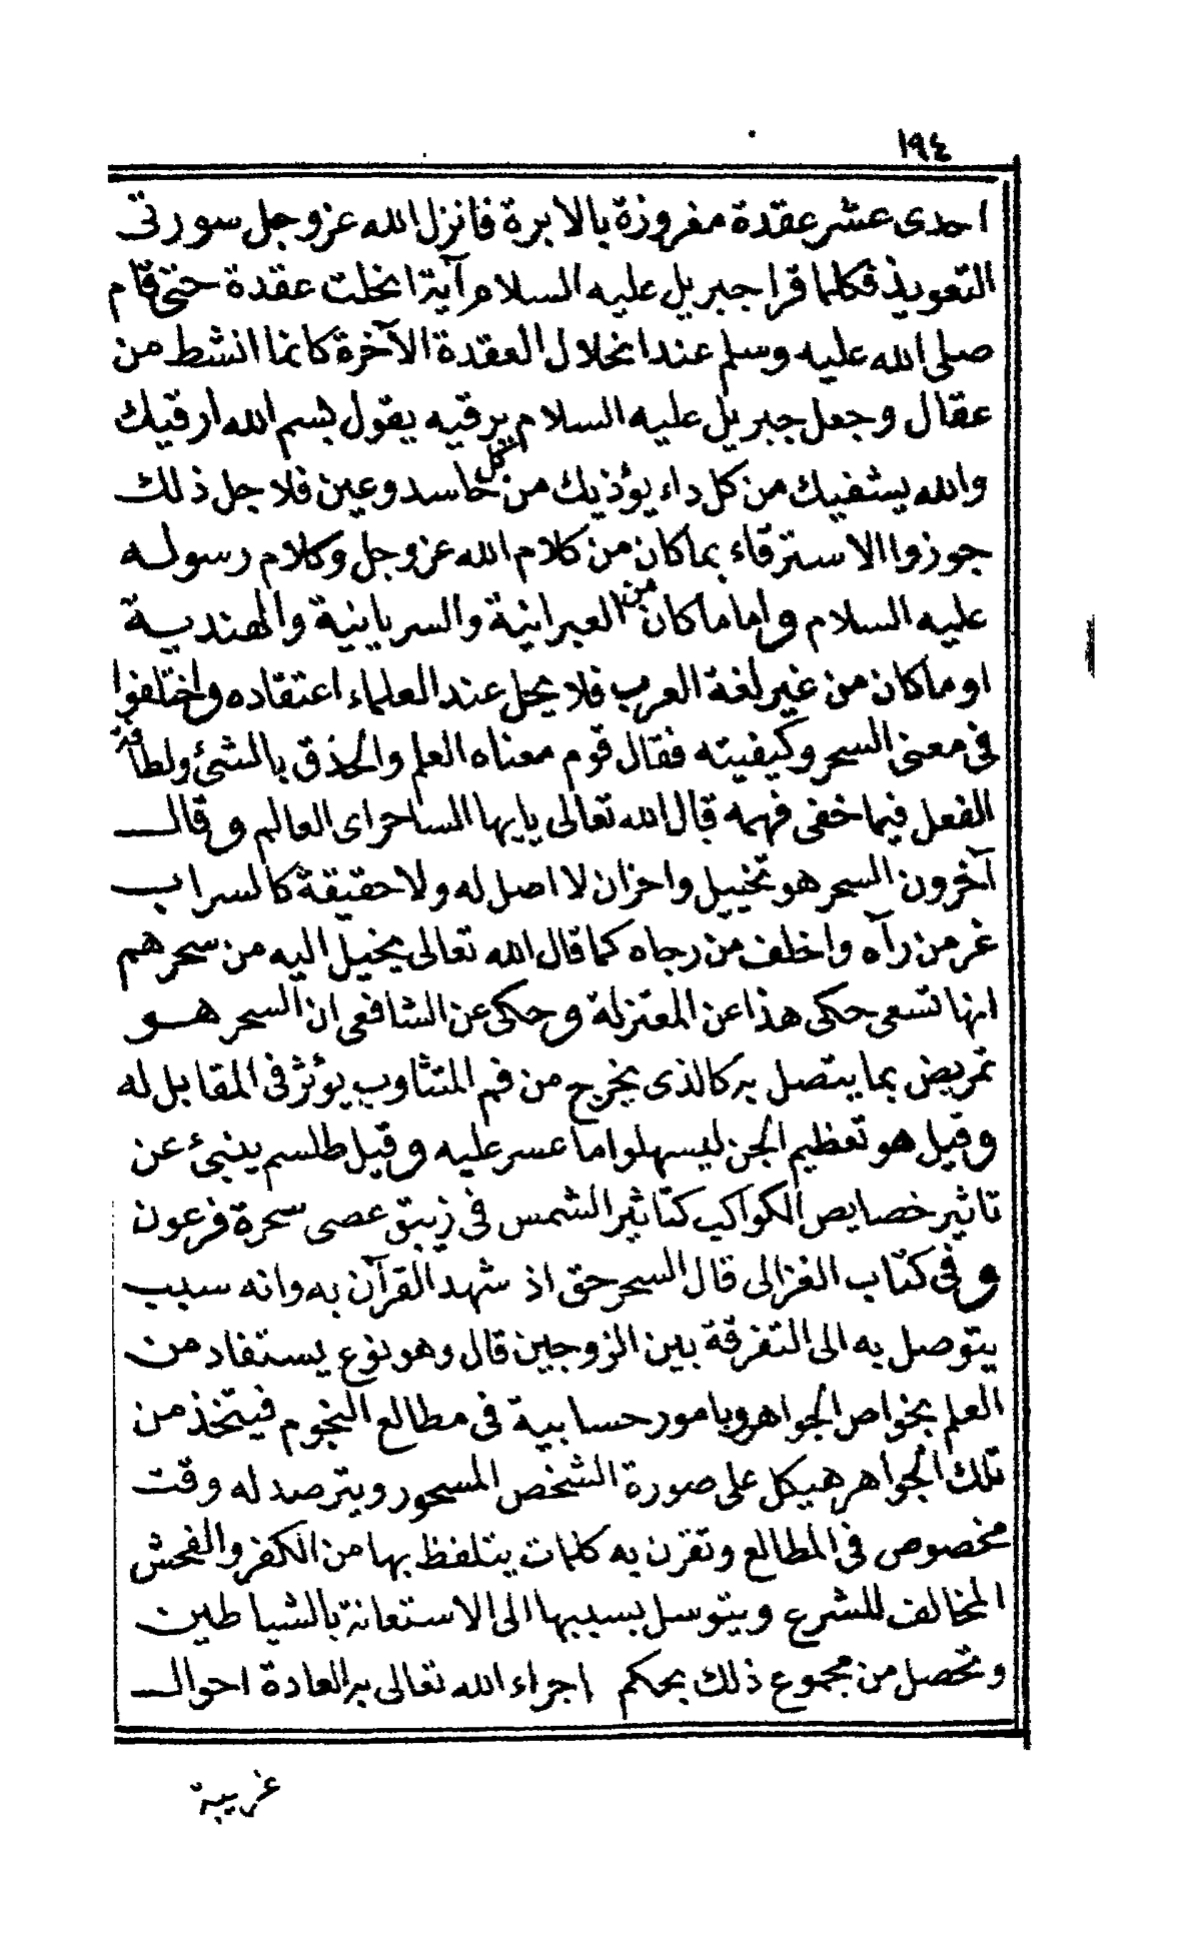 ١٩٤
احدى عشر عقدة مغروزة بالابرة فانزل الله عز وجل سورتى
التعويذ فكلما قرا جبريل عليه السلام آية انحلت عقدة حتى قام
صلى الله عليه وسلم عند انحلال العقدة الآخرة كانما انشط من
عقال وجعل جبريل عليه السلام يرقيه يقول بسم الله ارقيك
والله يشفيك من كل داء يؤذيك من كل حاسد وعين فلاجل ذلك
جوزوا الاسترقاء بما كان من كلام الله عز وجل وكلام رسوله
عليه السلام واما ما كان من العبرانية والسريانية والهندية
او ما كان من غير لغة العرب فلا يحل عند العلماء اعتقاده واختلفوا
فى معنى السحر وكيفيته فقال قوم معناه العلم والحذق بالشئ ولطافة
الفعل فيما خفى فهمه قال الله تعالى يايها الساحر اى العالم وقال
آخرون السحر هو تخييل واخزان لا اصل له ولا حقيقة كالسراب
غر من رآه واخلف من رجاه كما قال الله تعالى يخيل اليه من سحرهم
انها تسعى حكى هذا عن المعتزلة وحكى عن الشافعى ان السحر هو
تمريض بما يتصل به كالذى يخرج من فم المتثاوب يؤثر فى المقابل له
وقيل هو تعظيم الجن ليسهلوا ما عسر عليه وقيل طلسم ينبئ عن
تاثير خصايص الكواكب كتاثير الشمس فى زيبق عصى سحرة فرعون
وفى كتاب الغزالى قال السحر حق اذ شهد القرآن به وانه سبب
يتوصل به الى التفرقة بين الزوجين قال وهو نوع يستفاد من
العلم بخواص الجواهر وبامور حسابية فى مطالع النجوم فيتخذ من
تلك الجواهر هيكل على صورة الشخص المسحور ويترصد له وقت
مخصوص فى المطالع وتقرن به كلمات يتلفظ بها من الكفر والفحش
المخالف للشرع ويتوسل بسببها الى الاستعانة بالشياطين
وتحصل من مجموع ذلك بحكم اجراء الله تعالى به العادة احوال
غريبة